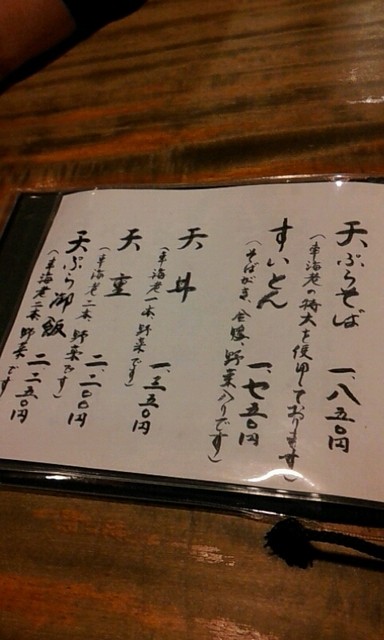 天ぷらそば 一、八五〇円
(車海老の特大を使用しております)
すいとん 一、七五〇円
(そばがき、合鴨、野菜入りです)
天丼 一、三五〇円
(車海老一本、野菜です)
天重 二、二〇〇円
(車海老二本、野菜です)
天ぷら御飯 二、二五〇円
(車海老二本、野菜です